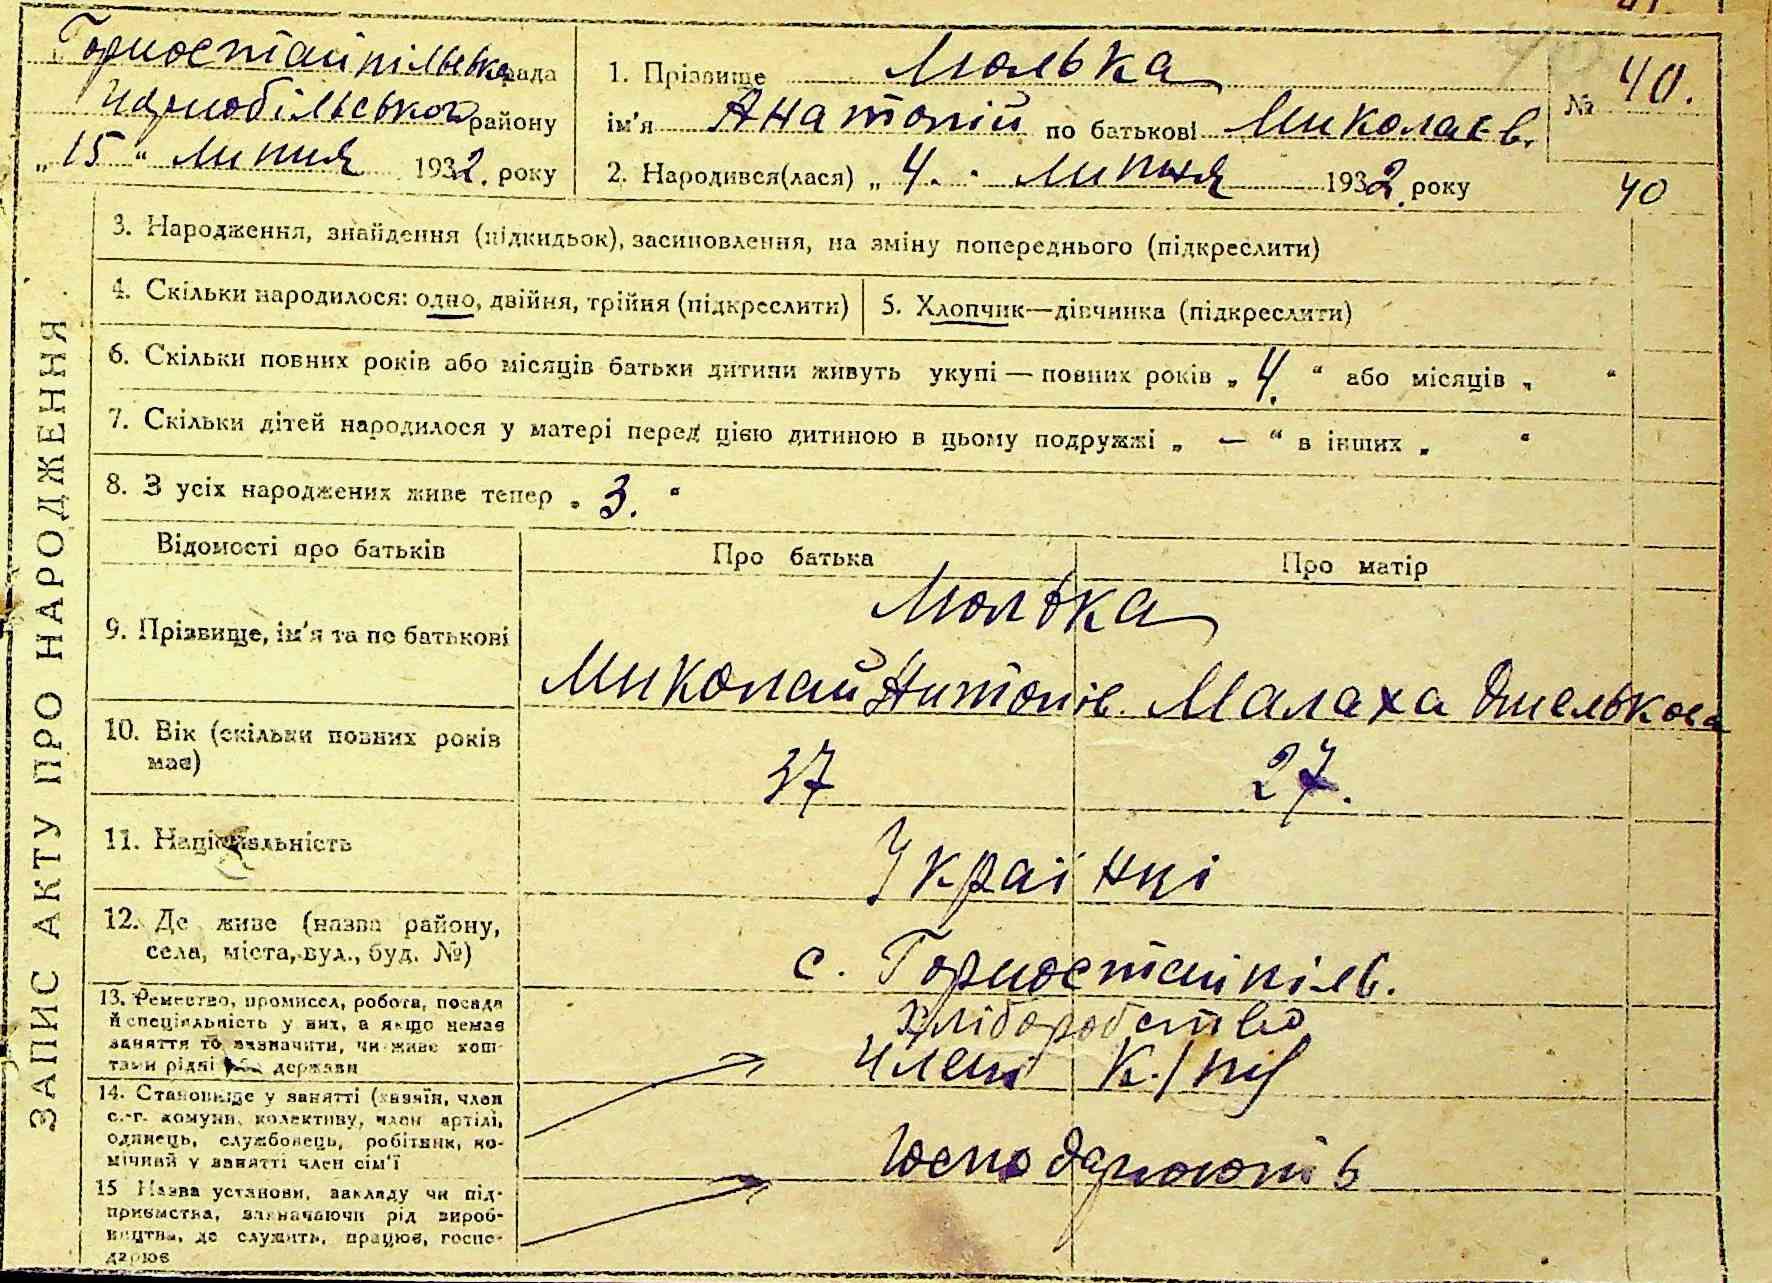 Горностайпільська рада
Чорнобільського району
„ 15 “ липня 1932. року
1. Прізвище Мюлька
ім'я Анатолій по батькові Миколаєв.
2. Народився(лася) „ 4. “ липня 1932. року
№ 40.
40
3. Народження, знайдення (підкидьок), засиновлення, на зміну попереднього (підкреслити)
4. Скільки народилося: одно, двійня, трійня (підкреслити)
5. Хлопчик—дівчинка (підкреслити)
6. Скільки повних років або місяців батьки дитини живуть укупі — повних років „ 4. “ або місяців „ “
7. Скільки дітей народилося у матері перед цією дитиною в цьому подружжі „ — “ в інших „ “
8. З усіх народжених живе тепер „ 3. “
ЗАПИС АКТУ ПРО НАРОДЖЕННЯ
Відомості про батьків
Про батька
Про матір
9. Прізвище, ім'я та по батькові
Мюлька
Миколай Антонів. Малаха
10. Вік (скільки повних років
має)
37
27.
11. Національність
Українці
12. Де живе (назва району,
села, міста, вул., буд. №)
с. Горностайпіль.
13. Ремество, промисел, робота, посада
й спеціяльність у них, а якщо немає
заняття то зазначити, чи живе кош-
тами рідні або держави
Хліборобство
члени К/
14. Становище у занятті (хазяїн, член
с.-г. комуни, колективу, член артілі,
одинець, службовець, робітник, по-
мічний у занятті член сім'ї
15 Назва установи, закладу чи під-
приємства, зазначаючи рід вироб-
ництва, де служить, працює, госпо-
дарює